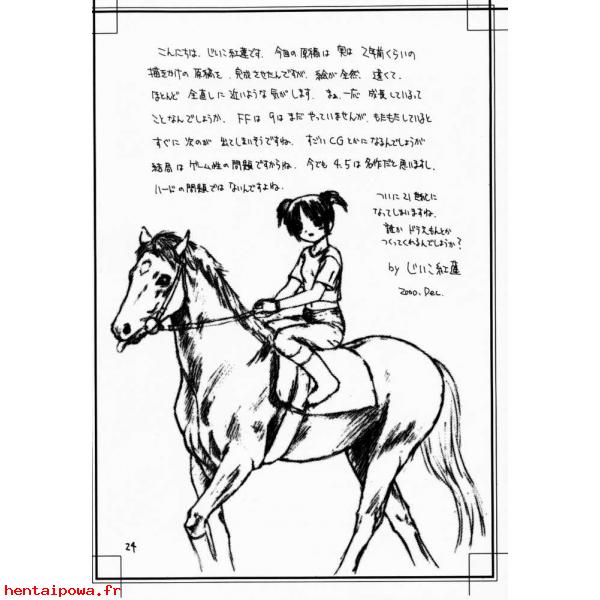 こんにちは、じいこ紅蓮です。今回の原稿は実は2年前くらいの
描きかけの原稿を、完成させたんですが、絵が全然、違くて、
ほとんど全直しに近いような気がします。まぁ、一応成長しているって
ことなんでしょうか。FFは9はまだやっていませんが、もたもたしていると
すぐに次のが出てしまいそうですね。すごいCGとかになるんでしょうが
結局はゲーム性の問題ですからね。今でも4.5は名作だと思いますし、
ハードの問題ではないんですよね。
ついに21世紀に
なってしまいますね。
誰かドラえもんとか
つくってくれるんでしょうか?
by じいこ紅蓮
2000. Dec.
24
hentaipowa.fr